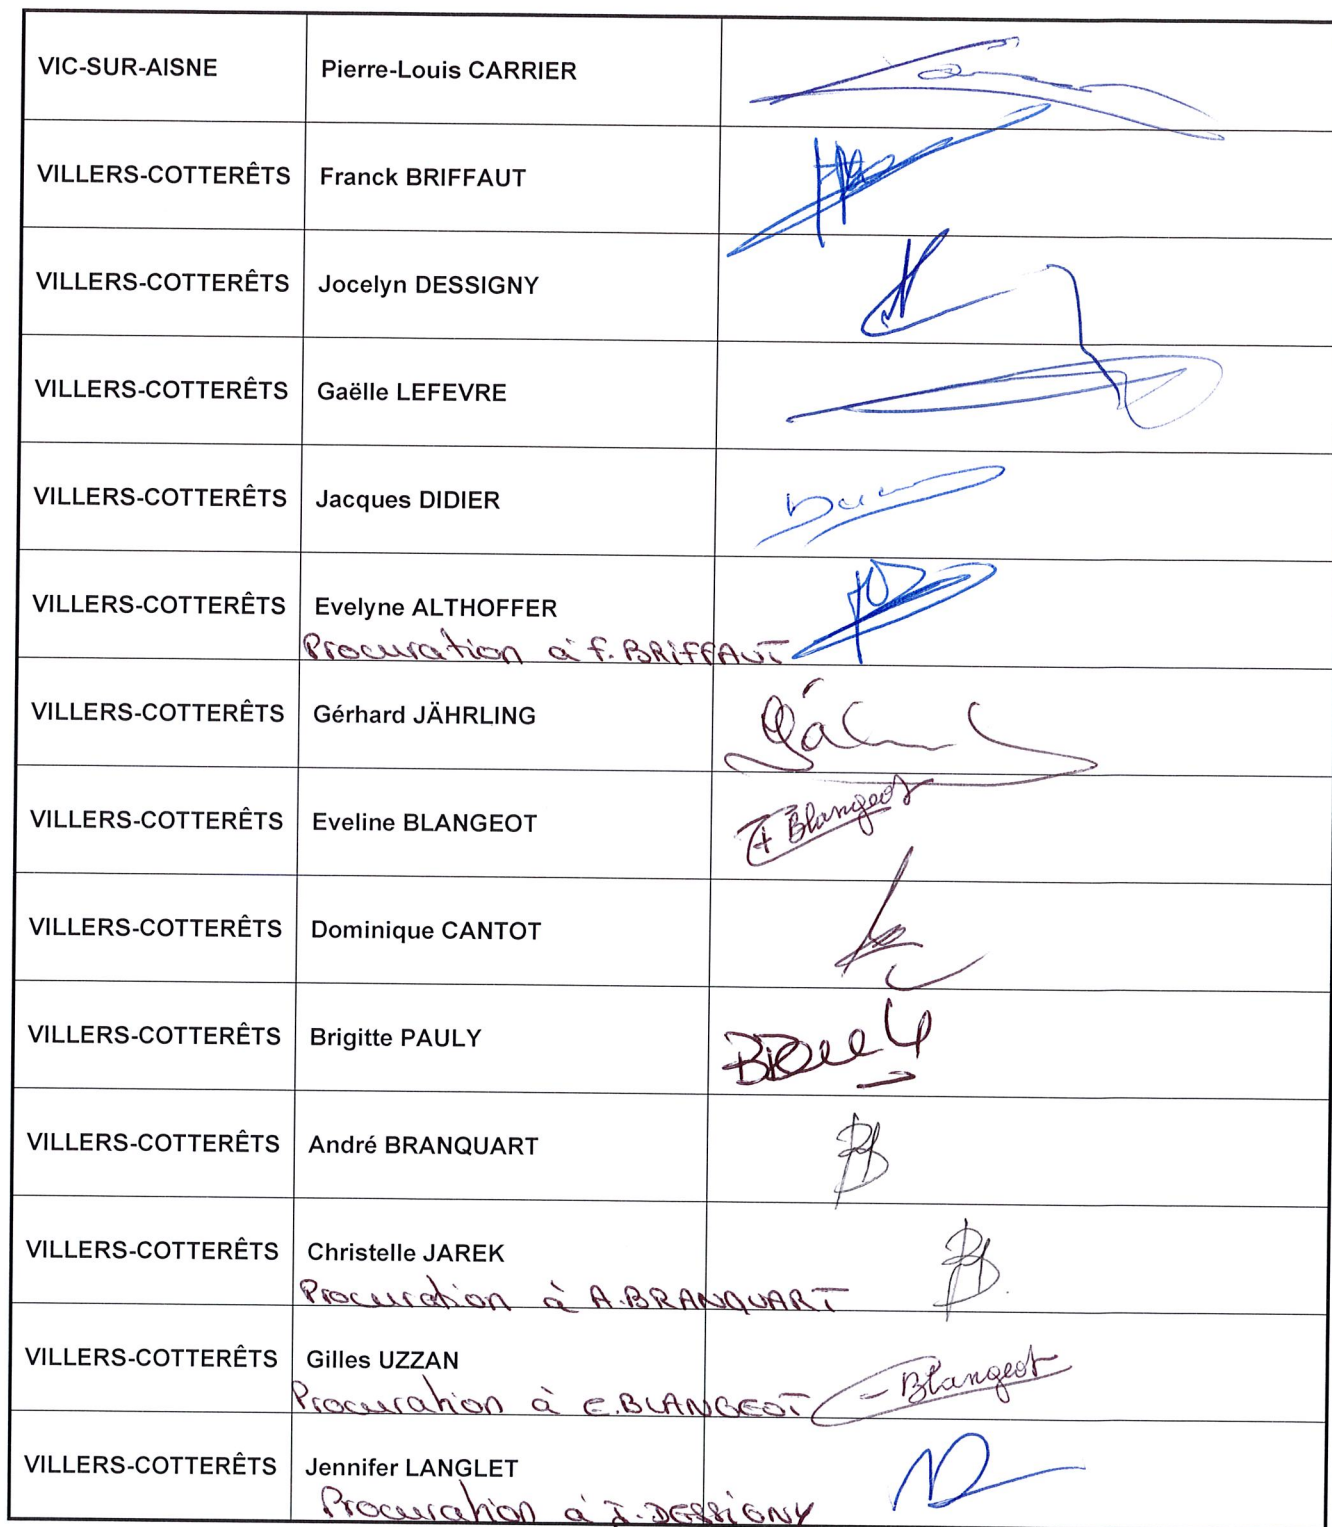 VIC-SUR-AISNE Pierre-Louis CARRIER
VILLERS-COTTERÊTS Franck BRIFFAUT
VILLERS-COTTERÊTS Jocelyn DESSIGNY
VILLERS-COTTERÊTS Gaëlle LEFEVRE
VILLERS-COTTERÊTS Jacques DIDIER
VILLERS-COTTERÊTS Evelyne ALTHOFFER
Procuration à F. BRIFFAUT
VILLERS-COTTERÊTS Gérhard JÄHRLING
VILLERS-COTTERÊTS Eveline BLANGEOT Blangeot
VILLERS-COTTERÊTS Dominique CANTOT
VILLERS-COTTERÊTS Brigitte PAULY
VILLERS-COTTERÊTS André BRANQUART
VILLERS-COTTERÊTS Christelle JAREK
Procuration à A.BRANQUART
VILLERS-COTTERÊTS Gilles UZZAN Blangeot
Procuration à E.BLANGEOT
VILLERS-COTTERÊTS Jennifer LANGLET
Procuration à J. DESSIGNY